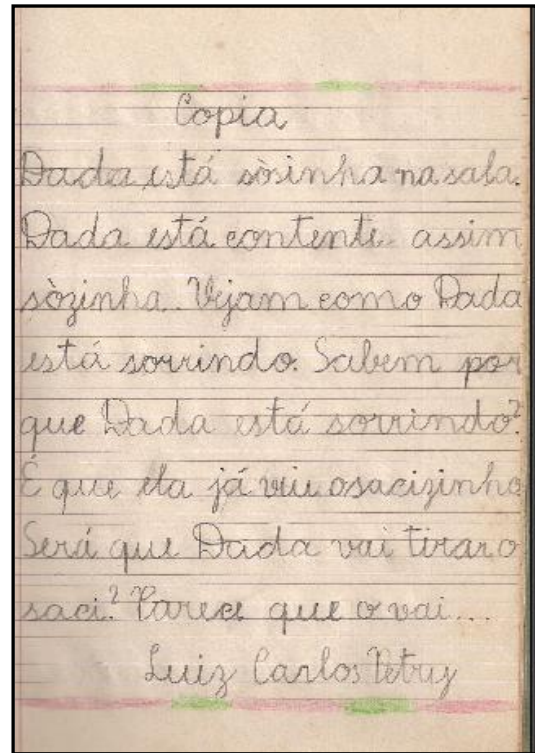 Copia
Dada está sòsinha na sala.
Dada está contente assim
sòzinha. Vejam como Dada
está sorrindo. Sabem por
que Dada está sorrindo?
É que ela já viu osacizinho
Será que Dada vai tirar o
saci? Parece que o vai...
Luiz Carlos Petry